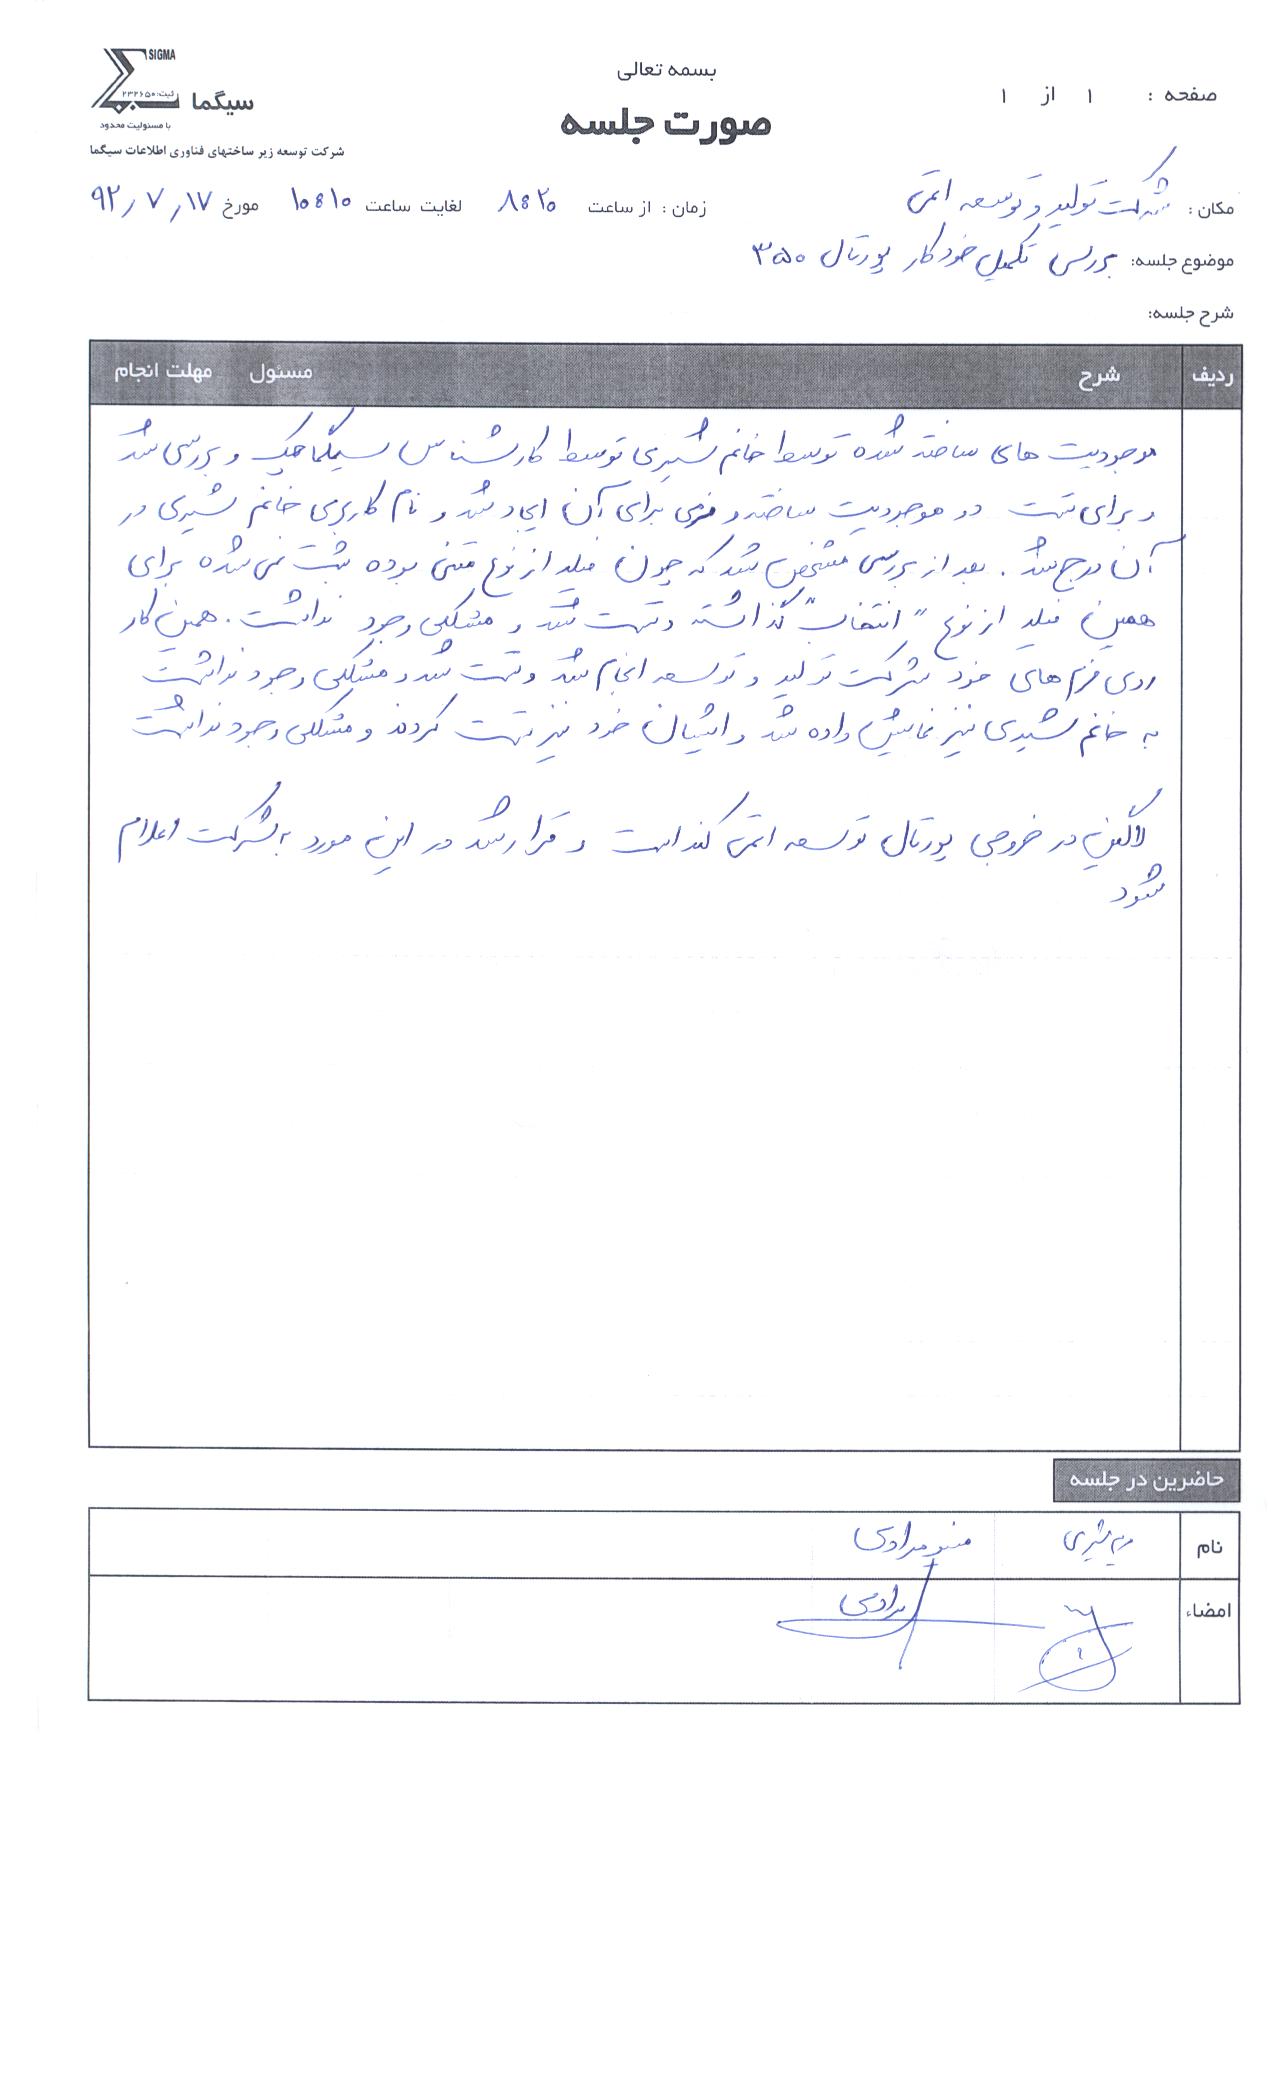 SIGMA
ثبت: ۲۳۲۶۵۰
سیگما
با مسئولیت محدود
شرکت توسعه زیر ساختهای فناوری اطلاعات سیگما
بسمه تعالی
صورت جلسه
صفحه : ۱ از ۱
مکان : شرکت تولید و توسعه اتمی
زمان : از ساعت ۸:۲۰ لغایت ساعت ۱۰:۱۰ مورخ ۹۲/۷/۱۷
موضوع جلسه: بررسی تکمیل خودکار پورتال ۳۵۰
شرح جلسه:
ردیف شرح مسئول مهلت انجام
موجودیت های ساخته شده توسط خانم شیری توسط کارشناس سیگما چک و بررسی شد
و برای تست دو موجودیت ساخته و فرمی برای آن ایجاد شد و نام کاربری خانم شیری در
آن درج شد . بعد از بررسی مشخص شد که چون فیلد از نوع متنی بوده ثبت نمی شده برای
همین فیلد از نوع "انتخاب" گذاشته و تست شد و مشکلی وجود نداشت . همین کار
روی فرم های خود شرکت تولید و توسعه انجام شد و تست شد و مشکلی وجود نداشت
به خانم شیری نیز نمایش داده شد و ایشان خود نیز تست کردند و مشکلی وجود نداشت
لاگین در خروجی پورتال توسعه اتمی کند است و قرار شد در این مورد به شرکت اعلام
شود
حاضرین در جلسه
نام شیری مرادی
امضاء مرادی